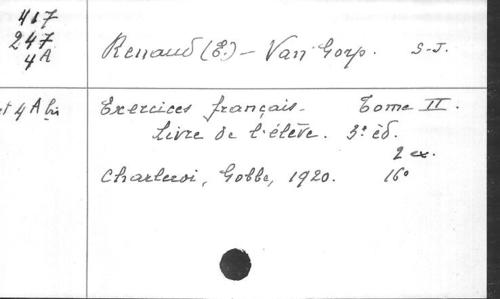 417
247
4A
Renaud (E.) - Van Gorp. S-J.
et 4 A bis
Exercices français - Tome II.
Livre de l'élève. 3e éd.
2 ex.
Charleroi, Gobbe, 1920. 16°